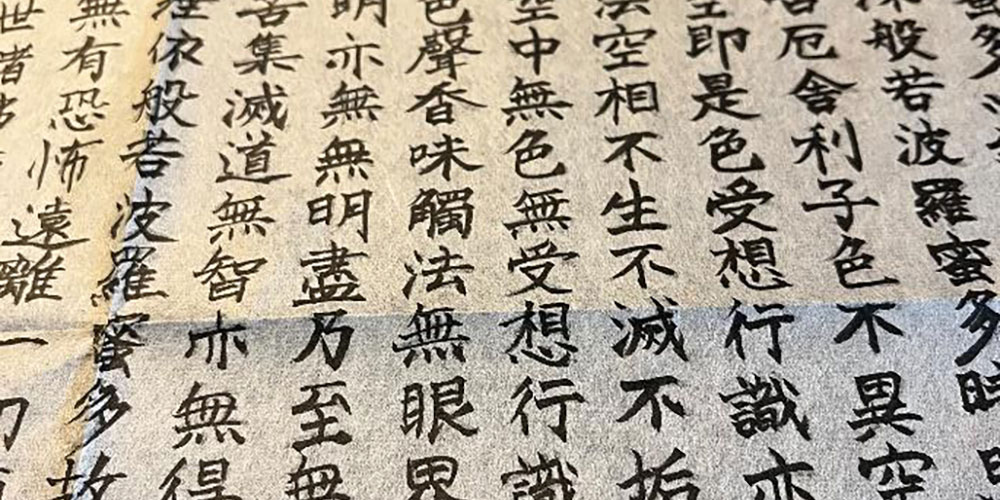 深般若波羅蜜多時
苦厄舍利子色不異空
空即是色受想行識亦
法空相不生不滅不垢
空中無色無受想行識
色聲香味觸法無眼界
明亦無無明盡乃至無
苦集滅道無智亦無得
依般若波羅蜜多故
無有恐怖遠離一切
世諸